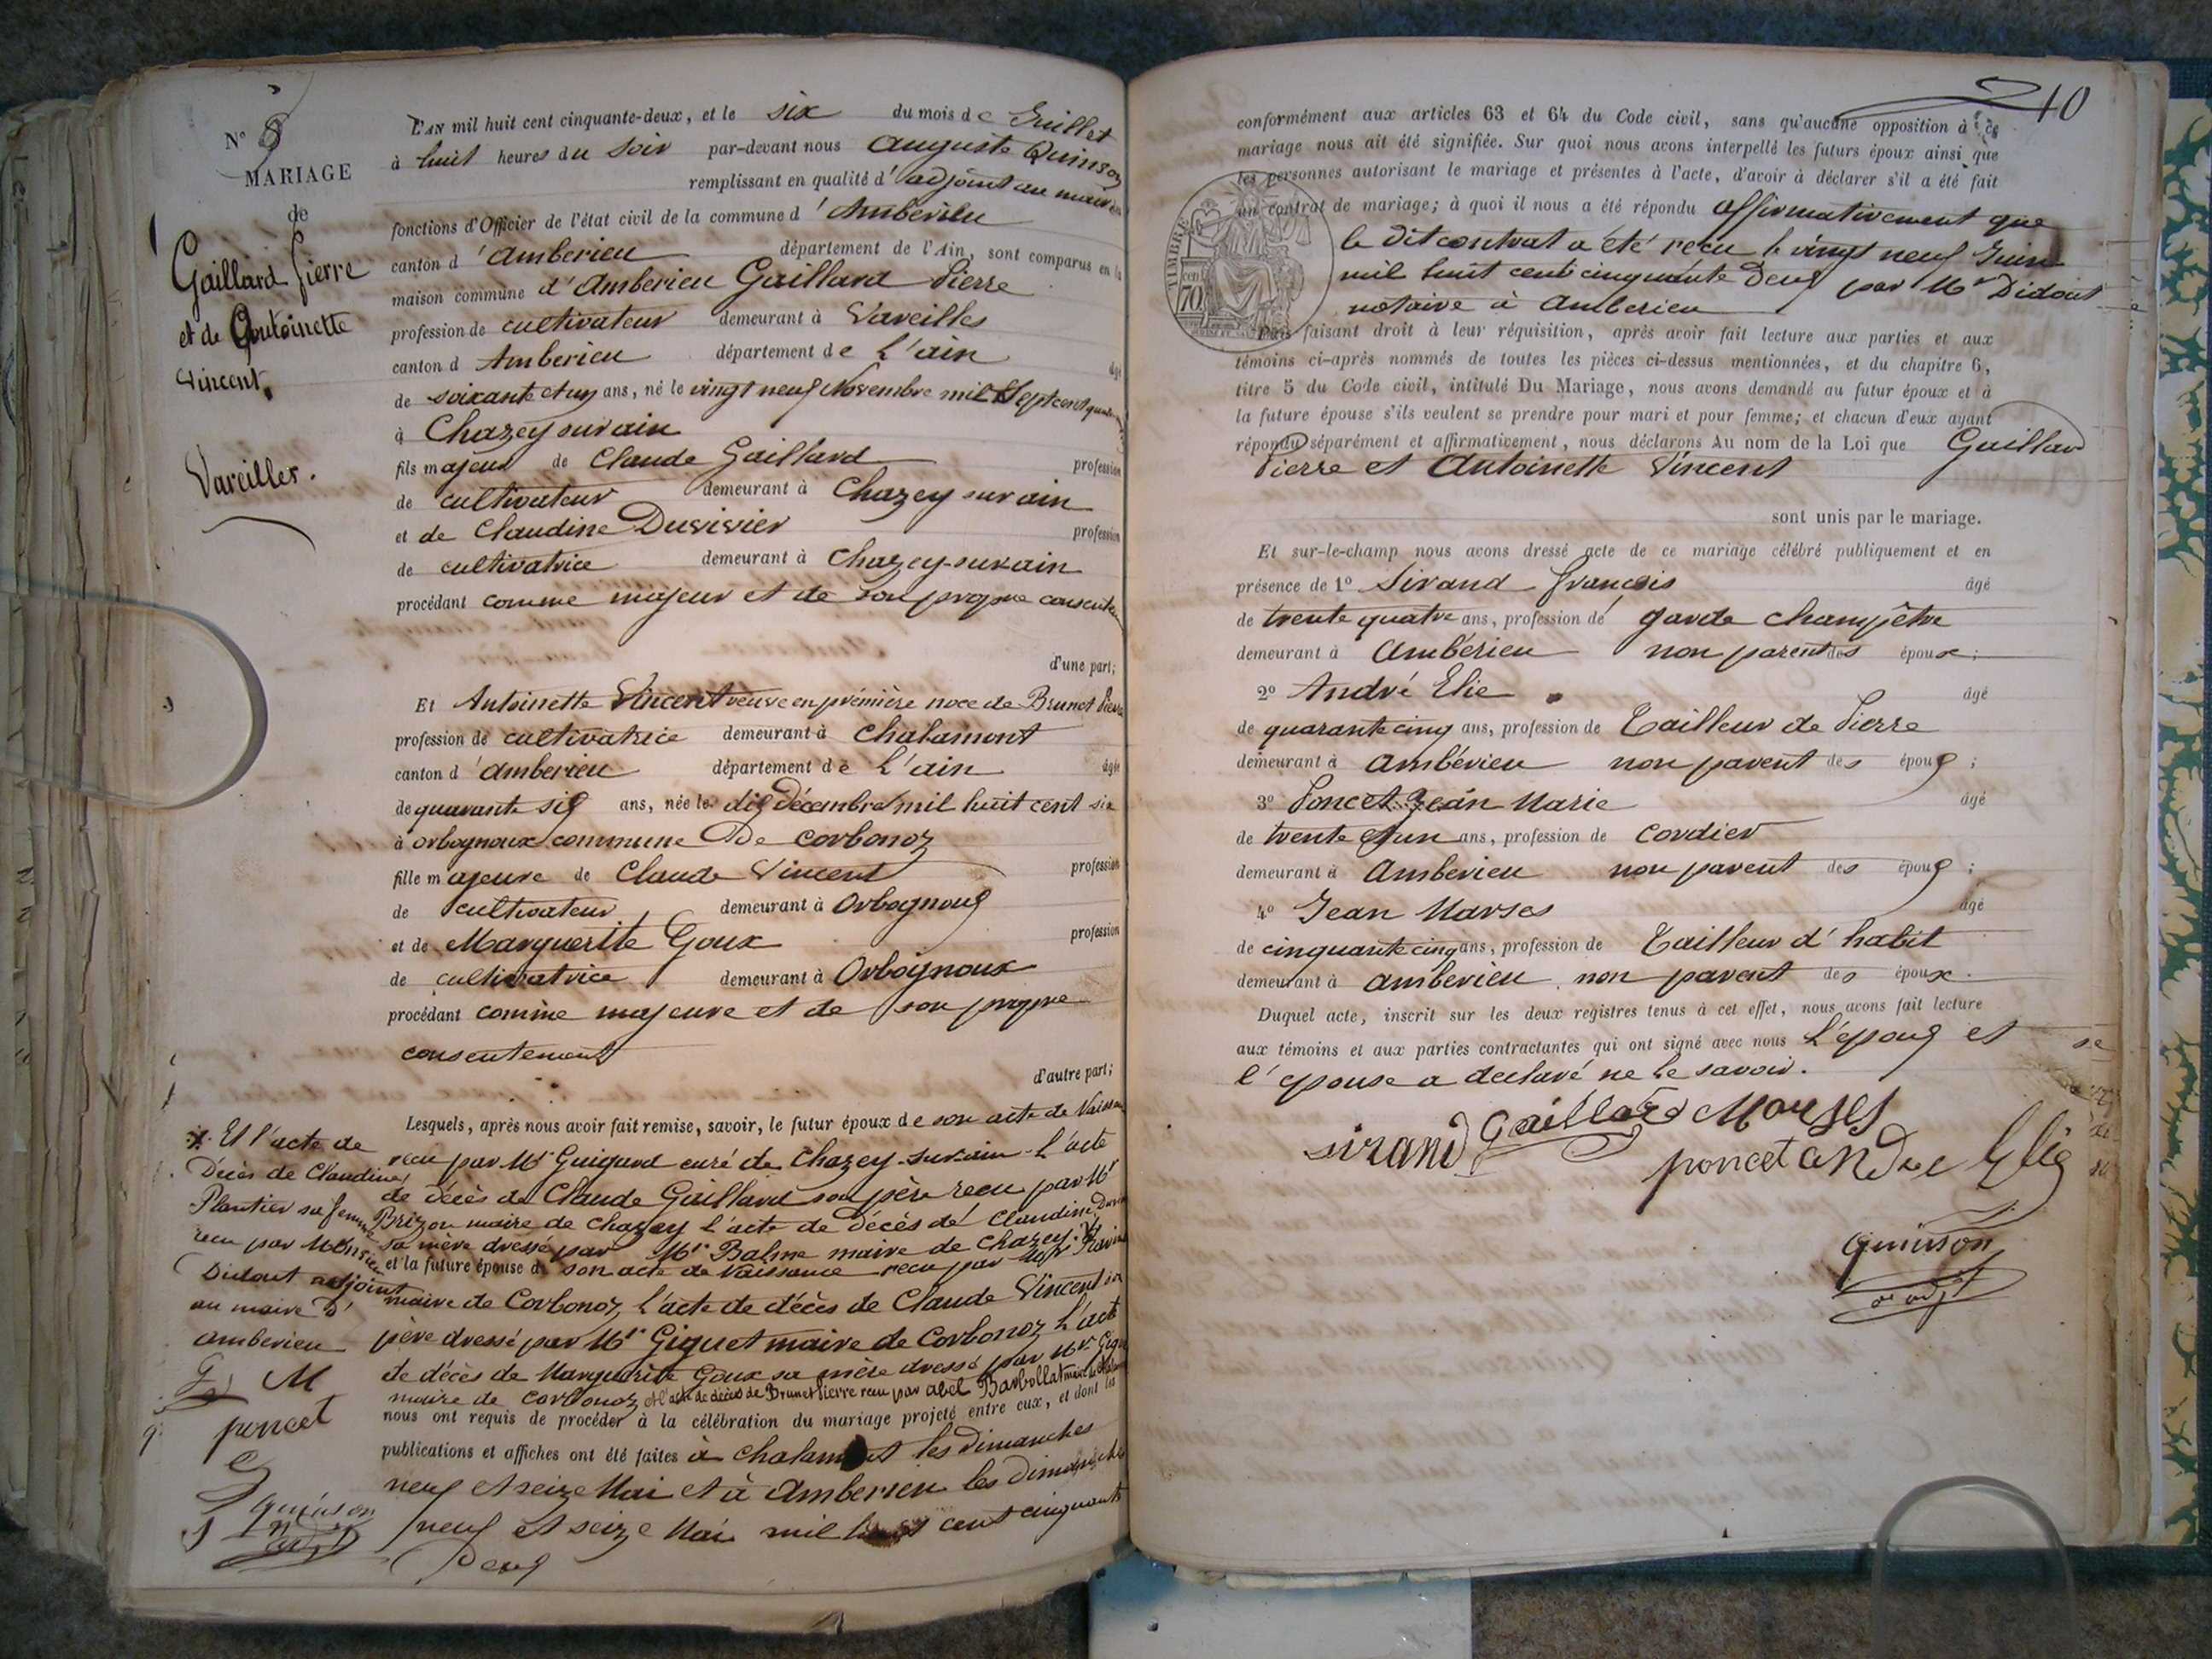 N° 8
MARIAGE
de
Gaillard Pierre
et de Antoinette
Vincent.
Vareilles.
L'AN mil huit cent cinquante-deux, et le six du mois de Juillet
à huit heures du Soir par-devant nous Auguste Quinson
remplissant en qualité d'adjoint au maire
fonctions d'Officier de l'état civil de la commune d'Amberieu
canton d'Amberieu département de l'Ain, sont comparus en la
maison commune d'Amberieu Gaillard Pierre
profession de cultivateur demeurant à Vareilles
canton d Amberieu département de L'ain âgé
de soixante et un ans, né le vingt neuf Novembre mil Sept cent
à Chazey sur ain
fils majeur de Claude Gaillard profession
de cultivateur demeurant à Chazey sur ain
et de Claudine Duvivier profession
de cultivatrice demeurant à Chazey-sur ain
procédant comme majeur et de son propre
d'une part;
Et Antoinette Vincent veuve en première noce de Brunet Pierre
profession de cultivatrice demeurant à Chalamont
canton d'amberieu département de L'ain âgée
de quarante six ans, née le dix Décembre mil huit cent six
à orbagnoux commune De Corbonoz
fille majeure de Claude Vincent profession
de cultivateur demeurant à Orbagnoux
et de Marguerite Goux profession
de cultivatrice demeurant à Orbagnoux
procédant comme majeure et de son propre
consentement
d'autre part;
Lesquels, après nous avoir fait remise, savoir, le futur époux de son acte de
reçu par Mr Guigard curé de Chazey-sur ain - L'acte
de décès de Claude Gaillard son père reçu par Mr
Brizon maire de Chazey L'acte de décès de Claudine
sa mère dressé par Mr Balme maire de Chazey
et la future épouse de son acte de Naissance reçu par Mr
maire de Corbonoz, L'acte de décès de Claude Vincent son
père dressé par Mr Giguet maire de Corbonoz L'acte
de décès de Marguerite Goux sa mère dressé par Mr
maire de Corbonoz, et l'acte de décès de Brunet Pierre reçu par abel Barbollat
nous ont requis de procéder à la célébration du mariage projeté entre eux, et dont les
publications et affiches ont été faites à Chalamont les Dimanches
neuf et seize Mai et à Amberieu les Dimanches
neuf et seize Mai mil huit cent cinquante
Deux
x. Et l'acte de
Décès de Claudine
Plantier sa femme
reçu par Monsieur
Didout adjoint
au maire d'
amberieu
G M
poncet
E
quinson
10
conformément aux articles 63 et 64 du Code civil, sans qu'aucune opposition à ce
mariage nous ait été signifiée. Sur quoi nous avons interpellé les futurs époux ainsi que
les personnes autorisant le mariage et présentes à l'acte, d'avoir à déclarer s'il a été fait
un contrat de mariage; à quoi il nous a été répondu affirmativement que
le dit contrat a été reçu le vingt neuf Juin
mil huit cent cinquante Deux par Mr Didout
notaire à Amberieu
TIMBRE
70
Puis faisant droit à leur réquisition, après avoir fait lecture aux parties et aux
témoins ci-après nommés de toutes les pièces ci-dessus mentionnées, et du chapitre 6,
titre 5 du Code civil, intitulé Du Mariage, nous avons demandé au futur époux et à
la future épouse s'ils veulent se prendre pour mari et pour femme; et chacun d'eux ayant
répondu séparément et affirmativement, nous déclarons Au nom de la Loi que Gaillard
Pierre et Antoinette Vincent
sont unis par le mariage.
Et sur-le-champ nous avons dressé acte de ce mariage célébré publiquement et en
présence de 1° Sirand François âgé
de trente quatre ans, profession de garde champêtre
demeurant à Ambérieu non parent des époux;
2° André Elie âgé
de quarante cinq ans, profession de Tailleur de Pierre
demeurant à Ambérieu non parent des époux;
3° Poncet Jean Marie âgé
de trente et un ans, profession de Cordier
demeurant à Amberieu non parent des époux;
4° Jean Marses âgé
de cinquante cinq ans, profession de Tailleur d'habit
demeurant à amberieu non parent des époux.
Duquel acte, inscrit sur les deux registres tenus à cet effet, nous avons fait lecture
aux témoins et aux parties contractantes qui ont signé avec nous L'époux et
l'épouse a déclaré ne le savoir.
Gaillard Marses
sirand
poncet andre Elie
quinson